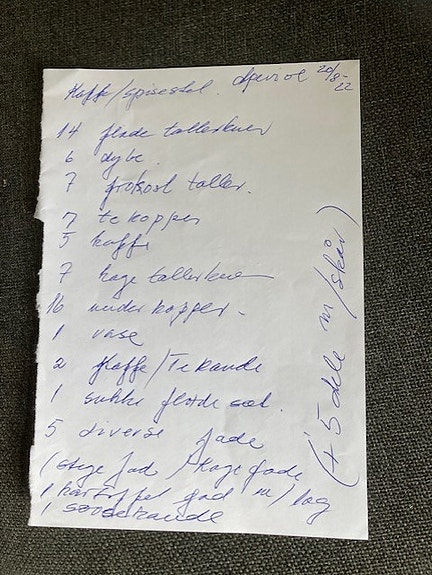 Kaffe/spisestel. 20/8-22
14 flade tallerkner
6 dybe.
7 frokost taller.
7 te kopper
5 kaffe
7 kage tallerkner
16 underkopper.
1 vase
2 Kaffe/Te kande
1 sukke fløde sæt.
5 diverse fade
1 stege fad / Kage fade
1 kartoffel fad m/log
1 sovsekande
(+ 5 dele m/skår)